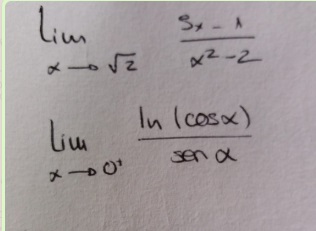 lim x→√2 (3x - 1)/(x² - 2)
lim x→0⁺ ln(cos x)/(sen x)